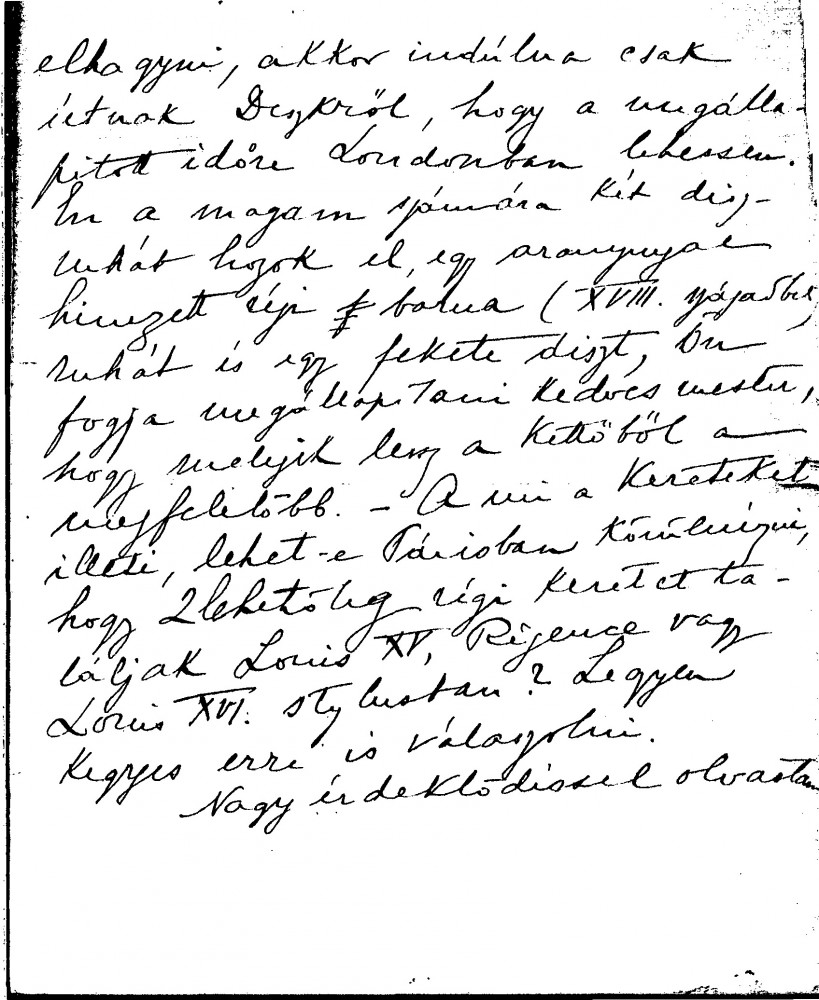 elhagyni, akkor indúlna csak
útnak Deszkről, hogy a megálla-
pitott időre Londonban lehessen.
Én a magam számára két disz-
ruhát hozok el, egy aranynyal
himzett régi barna (XVIII. századbeli)
ruhát és egy fekete diszt, Ön
fogja megállapitani kedves mester,
hogy melyik lesz a kettőből a
megfelelőbb. – A mi a kereteket
illeti, lehet-e Párisban körülnézni,
hogy 2 lehetőleg régi keretet ta-
láljak Louis XV, Régence vagy
Louis XVI. stylusban? Legyen
kegyes erre is válaszolni.
Nagy érdeklődéssel olvastam